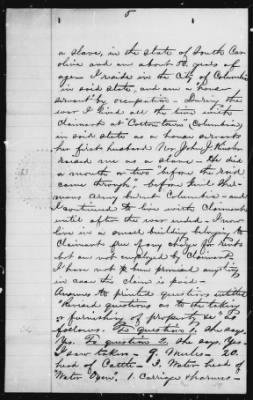 5
a slave, in the state of South Caro
olina and am about 50 years of
age. I reside in the City of Columbia
in said state, and am a house
servant by occupation - During the
war I lived all the time with
claimant at "Cotton town" (Columbia)
in said state as a house servant
her first husband Mr John J. Kinsler
raised me as a slave - He died
a month or two before the raid
came through, before Genl Sher
mans Army burnt Columbia - and
I continued to live with Claimant
until after the war ended. I now
live in a small building belonging to
Claimant free of any charge for rent
but am not employed by Claimant
I have not been promised anything
in case the claim is paid -
Answers to printed questions entitled
"Second questions as to the taking
or furnishing of property &c" as
follows. To question 1. she says.
Yes. To question 2. she says. Yes
I saw taken - 9. Mules - 20.
head of Cattle - 3. Water head of
"Water Oxen". 1. Carriage & harness -